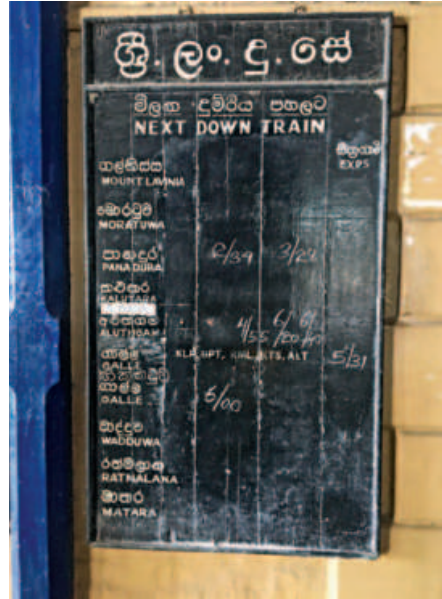 ශ්‍රී. ලං. දු. සේ
මීලඟ දුම්රිය පහලට
NEXT DOWN TRAIN
සීඝ්‍රගාමී
EXPS
ගල්කිස්ස
MOUNT LAVINIA
මොරටුව
MORATUWA
පානදුර
PANADURA 3/29
කළුතර
KALUTARA
අළුත්ගම
ALUTHGAMA 4/55 6/20
ගාල්ල
GALLE 5/31
ගාල්ල
GALLE 5/00
වාද්දුව
WADDUWA
රත්මලාන
RATMALANA
මාතර
MATARA